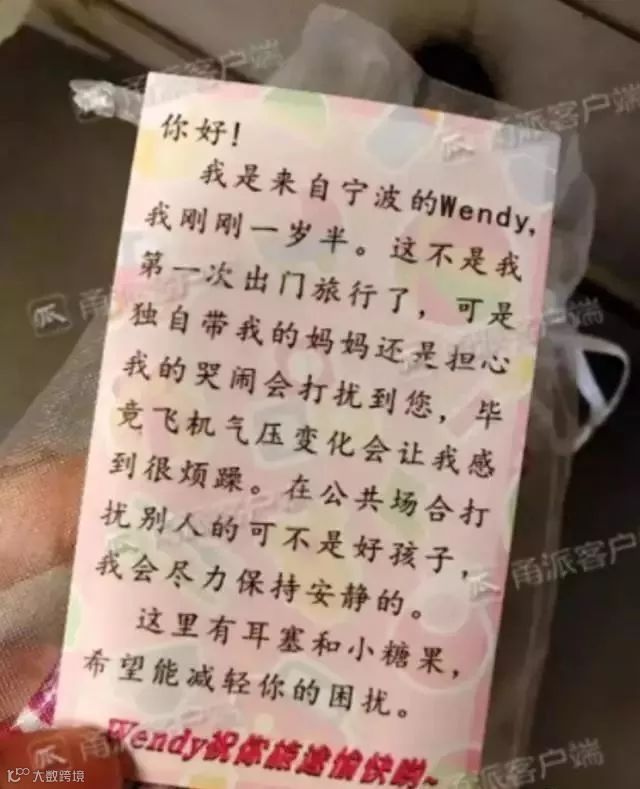 你好!
我是来自宁波的Wendy,
我刚刚一岁半。这不是我
第一次出门旅行了,可是
独自带我的妈妈还是担心
我的哭闹会打扰到您,毕
竟飞机气压变化会让我感
到很烦躁。在公共场合打
扰别人的可不是好孩子,
我会尽力保持安静的。
这里有耳塞和小糖果,
希望能减轻你的困扰。
Wendy祝你旅途愉快哟~
甬派客户端
甬派客户端
甬派客户端
甬派客户端
甬派客户端
甬派客户端
大数跨境